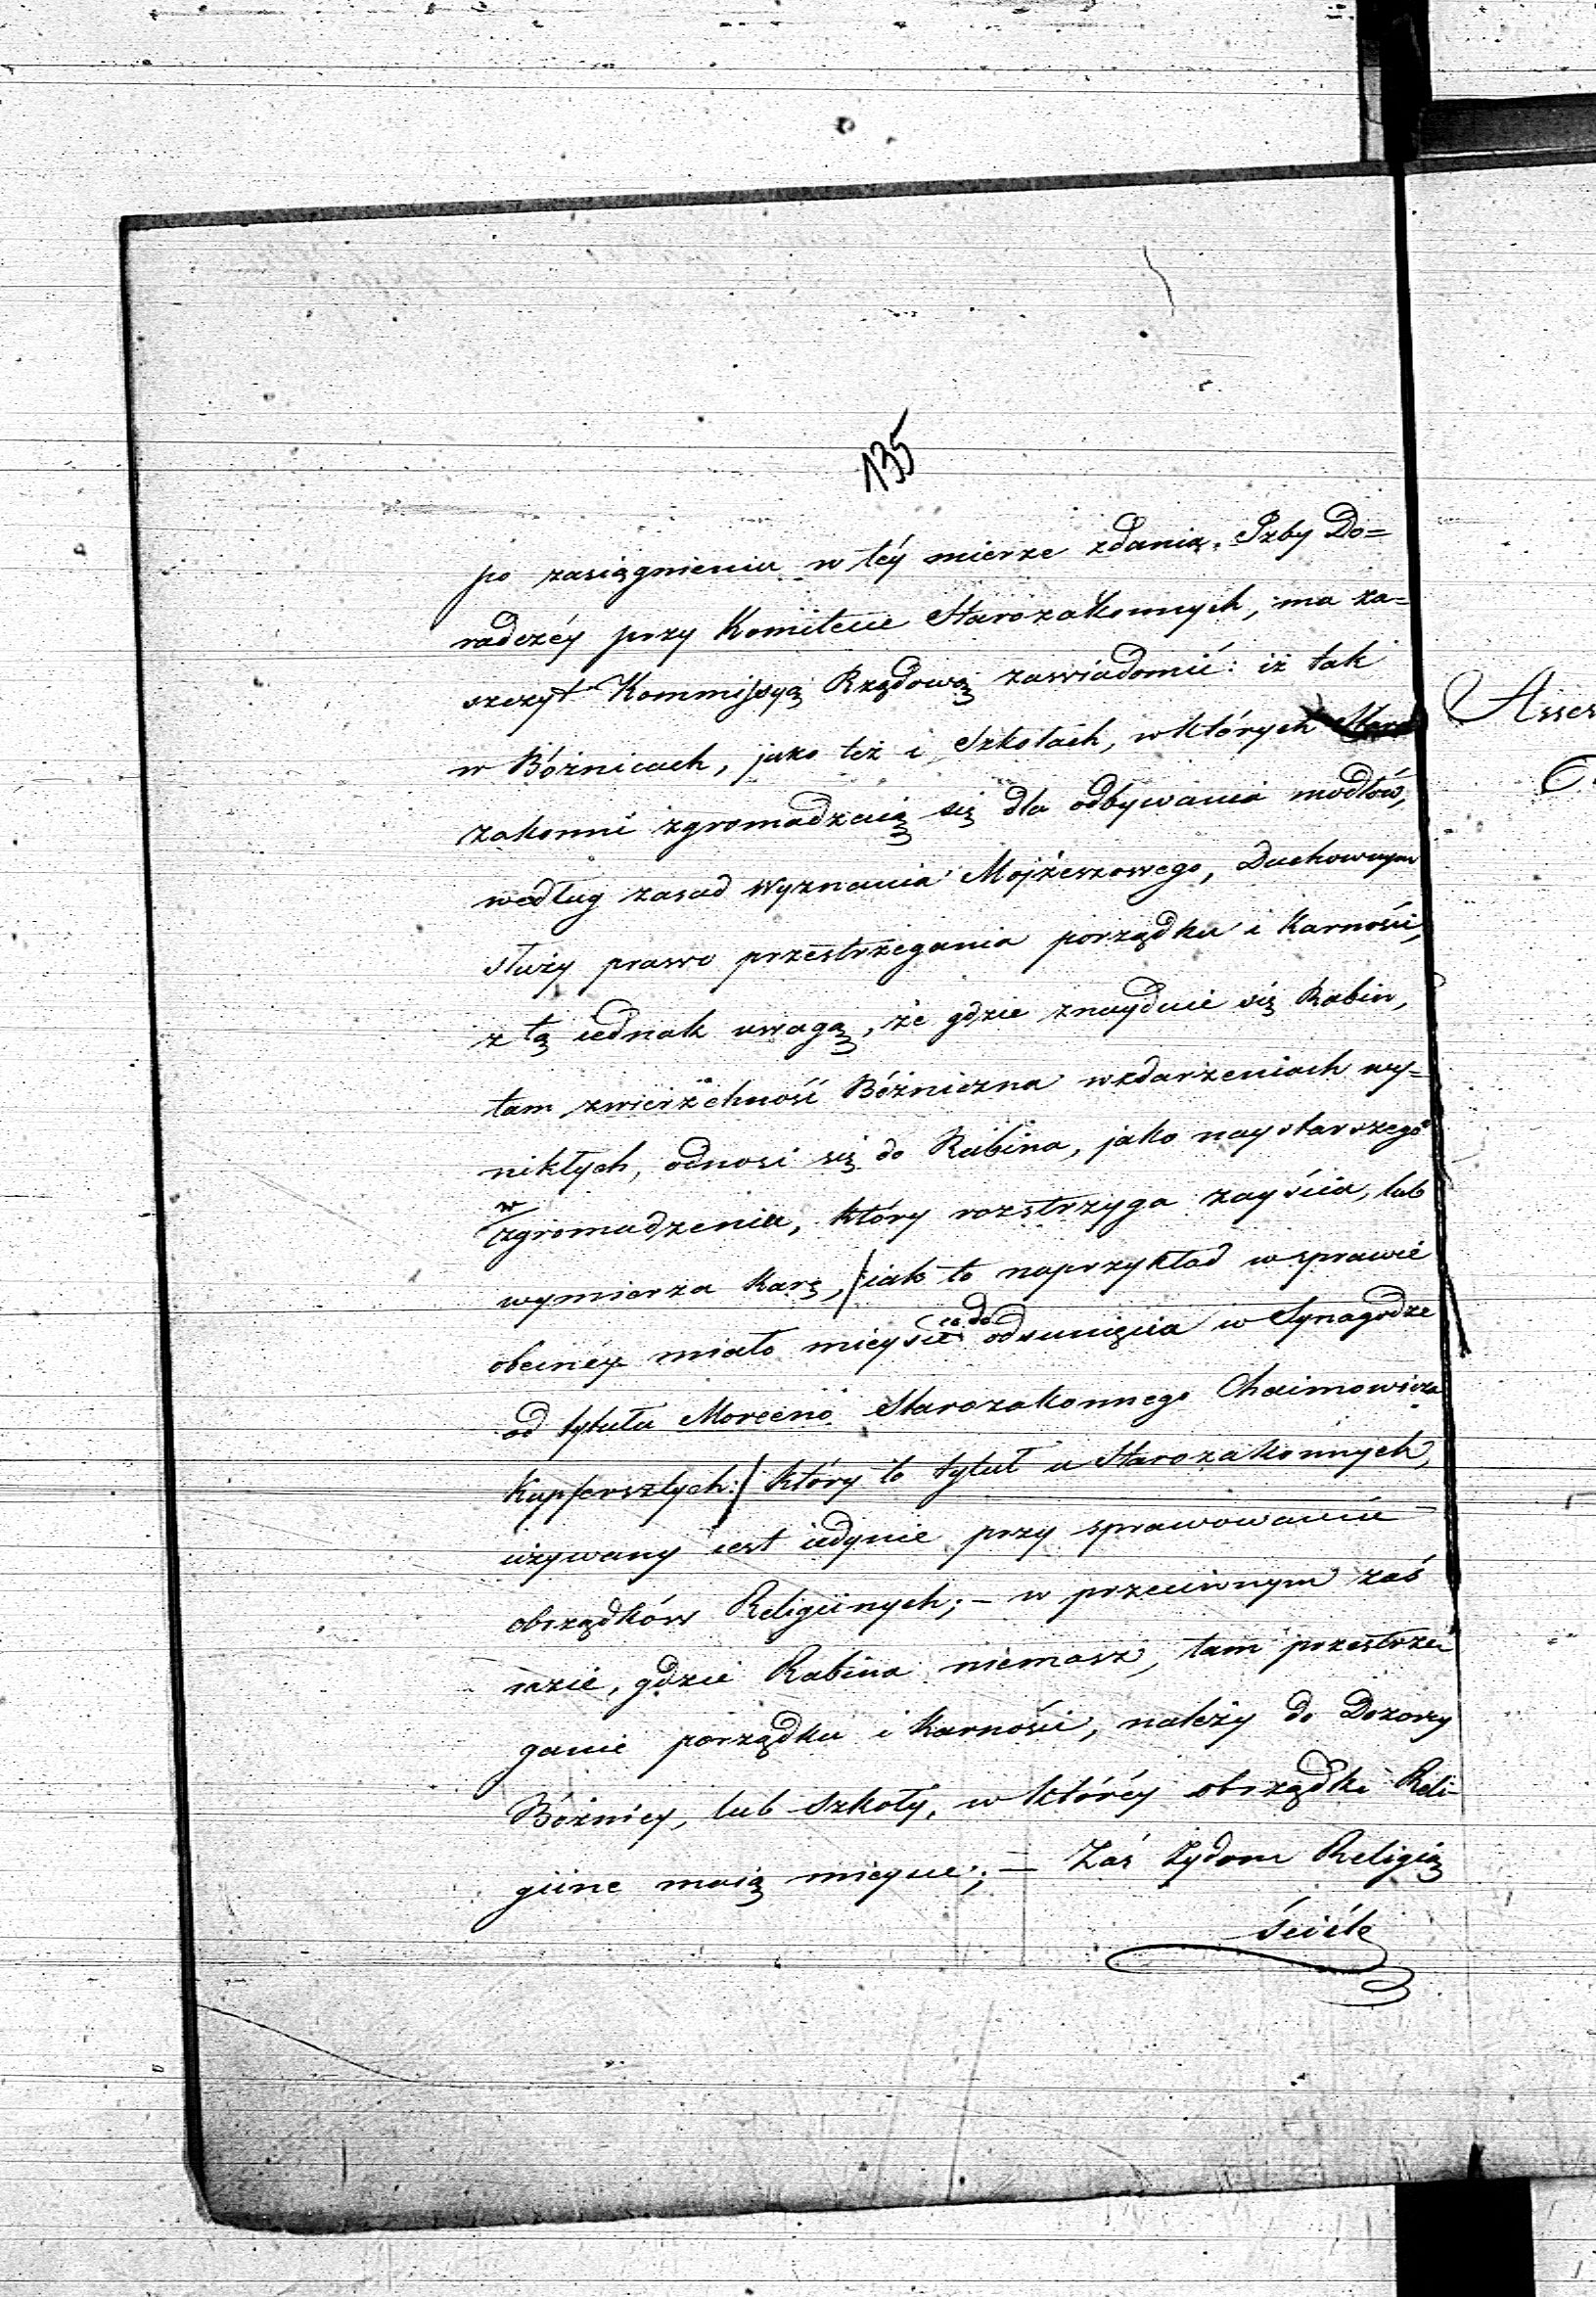 135
po zasiągnieniu w téy mierze zdania Izby Do=
radczéy przy Komitecie Starozakonnych, ma za=
szczyt Kommissyą Rządową zawiadomić: iż tak
w Bóżnicach, jako też i Szkołach, w których Staro
zakonni zgromadzaią się dla odbywania modłów,
według zasad wyznania Mojżeszowego, Duchownym
służy prawo przestrzegania porządku i karności,
z tą iednak uwagą, że gdzie znayduie się Rabin,
tam zwierzchność Bóżniczna w zdarzeniach wy=
nikłych, odnosi się do Rabina, jako naystarszego
w zgromadzeniu, który rozstrzyga zayścia, lub
wymierza karę, /:iak to naprzykład w sprawie
obecnéy miało mieysce co do odsunięcia w Synagodze
od tytułu Moreeno Starozakonnego Chaimowicza
Kupfersztych:/ który to tytuł u Starozakonnych,
używany iest iedynie przy sprawowaniu
obrządków Religiinych; – w przeciwnym zaś
razie, gdzie Rabina niemasz, tam przestrze
ganie porządku i karności, należy do Dozoru
Bóżnicy, lub Szkoły, w któréy obrządki Reli-
giine maią mieysce; – Zaś Żydom Religią
ściśle
Asses